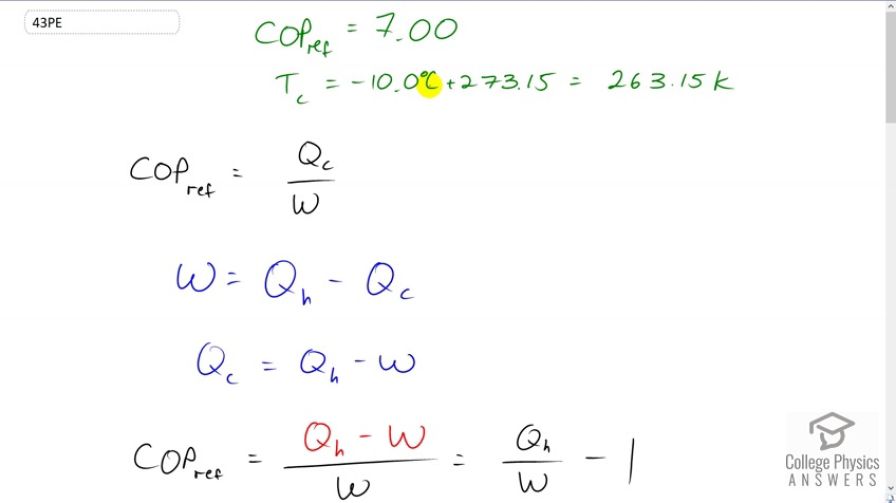 43PE
COP_ref = 7.00
T_c = -10.0°C + 273.15 = 263.15 K
COP_ref = Q_c / W
W = Q_h - Q_c
Q_c = Q_h - W
COP_ref = (Q_h - W) / W = Q_h / W - 1
College Physics
ANSWERS